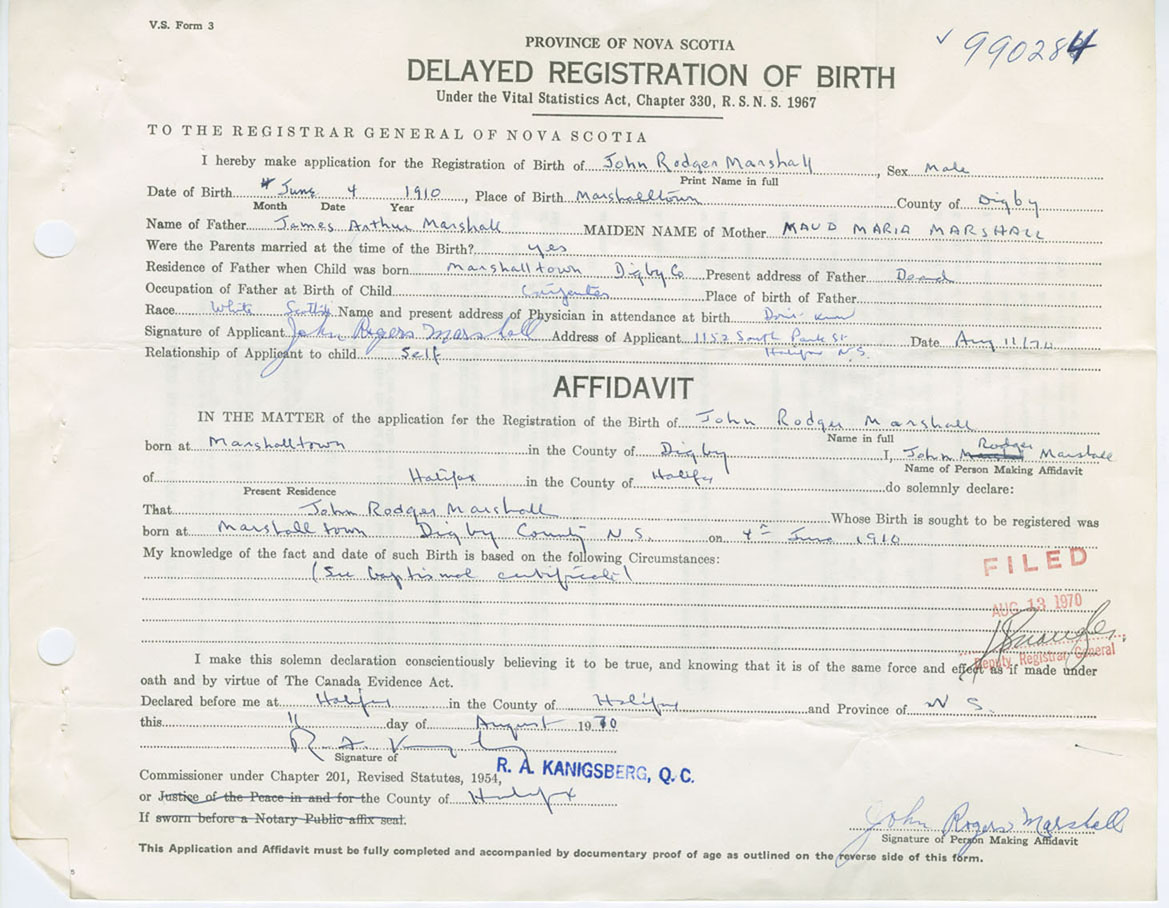 V.S. Form 3
✓ 990284
PROVINCE OF NOVA SCOTIA
DELAYED REGISTRATION OF BIRTH
Under the Vital Statistics Act, Chapter 330, R. S. N. S. 1967
TO THE REGISTRAR GENERAL OF NOVA SCOTIA
I hereby make application for the Registration of Birth of John Rodger Marshall, Sex Male
Print Name in full
Date of Birth June 4 1910, Place of Birth Marshalltown County of Digby
Month Date Year
Name of Father James Arthur Marshall MAIDEN NAME of Mother MAUD MARIA MARSHALL
Were the Parents married at the time of the Birth? yes
Residence of Father when Child was born Marshalltown Digby Co Present address of Father Dead
Occupation of Father at Birth of Child Carpenter Place of birth of Father
Race White Scottish Name and present address of Physician in attendance at birth Don't know
Signature of Applicant John Rogers Marshall Address of Applicant 1152 South Park St Date Aug 11/70
Halifax N.S.
Relationship of Applicant to child Self
AFFIDAVIT
IN THE MATTER of the application for the Registration of the Birth of John Rodger Marshall
Name in full
born at Marshalltown in the County of Digby I, John Rodger Marshall
Name of Person Making Affidavit
of Halifax in the County of Halifax do solemnly declare:
Present Residence
That John Rodger Marshall Whose Birth is sought to be registered was
born at Marshalltown Digby County N.S. on 4th June 1910
My knowledge of the fact and date of such Birth is based on the following Circumstances:
(See baptismal certificate)
FILED
AUG 13 1970
Deputy Registrar General
I make this solemn declaration conscientiously believing it to be true, and knowing that it is of the same force and effect as if made under
oath and by virtue of The Canada Evidence Act.
Declared before me at Halifax in the County of Halifax and Province of N S.
this 11 day of August 1970
Signature of
R. A. KANIGSBERG, Q. C.
Commissioner under Chapter 201, Revised Statutes, 1954,
or Justice of the Peace in and for the County of Halifax
If sworn before a Notary Public affix seal.
John Rogers Marshall
Signature of Person Making Affidavit
This Application and Affidavit must be fully completed and accompanied by documentary proof of age as outlined on the reverse side of this form.
5